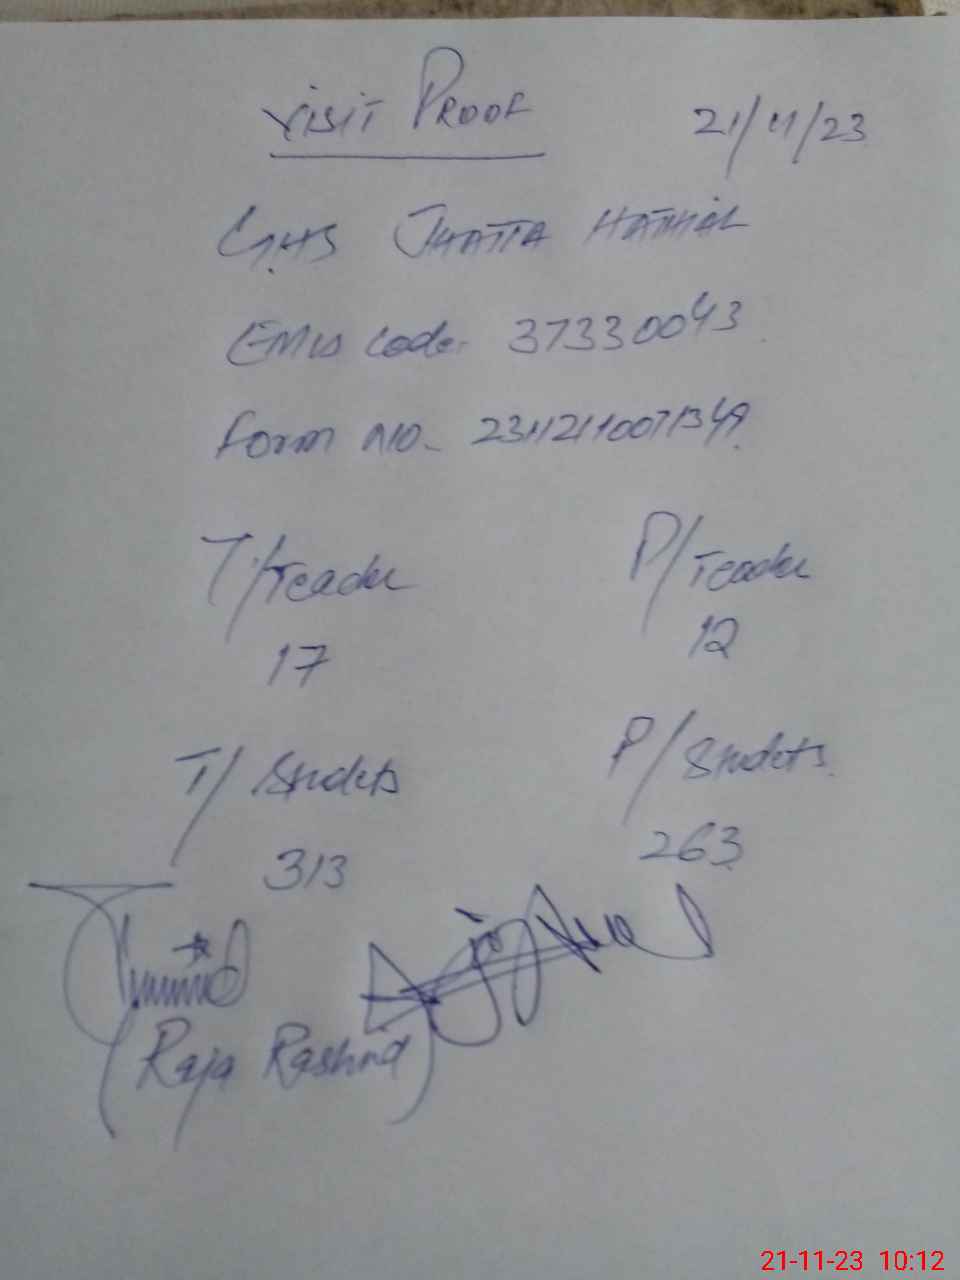 Visit Proof 21/11/23
GHS Jhatta Hathial
EMIS Code. 37330043
Form No. 23112110071349
T/Teacher P/Teacher
17 12
T/Students P/Students
313 263
(Raja Rashid)
21-11-23 10:12